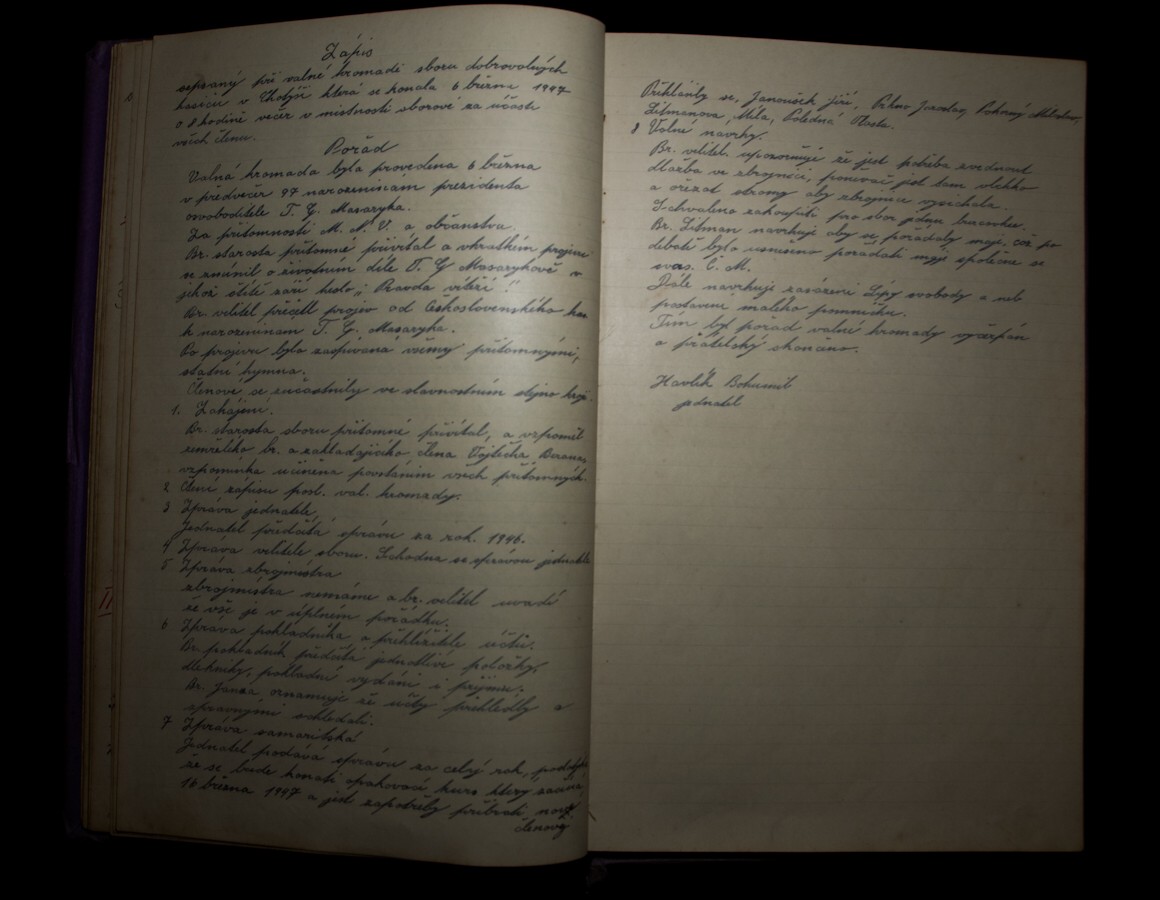 Zápis
sepsaný při valné hromadě sboru dobrovolných
hasičů v Chotýši která se konala 6 března 1947
o 8 hodině večer v místnosti sborové za účasti
všech členu.
Pořad
Valná hromada byla provedena 6 března
v předvečer 97 narozeninám prezidenta
osvoboditele T. G. Masaryka.
Za přítomnosti M. N. V. a občanstva.
Br. starosta přítomné přivítal a v krátkém projevu
se zmínil o životním díle T. G Masarykově v
jehož štítě září heslo „Pravda vítězí"!
Br. velitel přečetl projev od Československého
k narozeninám T. G. Masaryka.
Po projevu byla zaspívaná všemy přítomnými,
státní hymna.
Členové se zučastnily ve slavnostním stejno kroji.
1. Zahájení.
Br. starosta sboru přítomné přivítal, a vzpoměl
zemřelého br. a zakládajícího člena Vojtěcha Berana
vzpomínka učiněna povstáním všech přítomných.
2 Čtení zápisu posl. val. hromady.
3 Zpráva jednatele,
Jednatel předčítá zprávu za rok. 1946.
4 Zpráva velitele sboru. Schodna se zprávou jednatele
5 Zpráva zbrojmistra
zbrojmistra nemáme a br. velitel uvadí
že vše je v úplném pořádku.
6 Zpráva pokladníka a přehlížitele účtů.
Br. pokladník předčítá jednotlivé položky,
dlužníky, pokladní vydání i příjmu.
Br. Janza oznamuje že účty přehledly a
spravnými schledali.
7 Zpráva samaritská
Jednatel podává zprávu za celý rok,
že se bude konati opakovací kurs který začíná
16 března 1947 a jest zapotřeby přibrati nový
členový
Přihlásily se, Janoušek Jiří, Jaroslav, Pokorný Miloslav,
Litmanova Míla, Poledná Vlasta.
8 Volné navrhy.
Br. velitel. upozorňuje že jest potřeba zvednout
dlažba ve zbrojnici, poněvač jest tam vlhko
a ořezat stromy aby zbrojnice vysichala.
Schvaleno zakoupiti pro sbor jednu
Br. Litman navrhuje aby se pořadaly maje, což po
debatě bylo usneseno pořádati maje společne se
svas. Č. M.
Dále navrhuje zasazení Lípy svobody a neb
postavení malého pomníčku.
Tím byl pořad valné hromady vyčerpán
a přátelsky skončeno.
Havlík Bohumil
jednatel